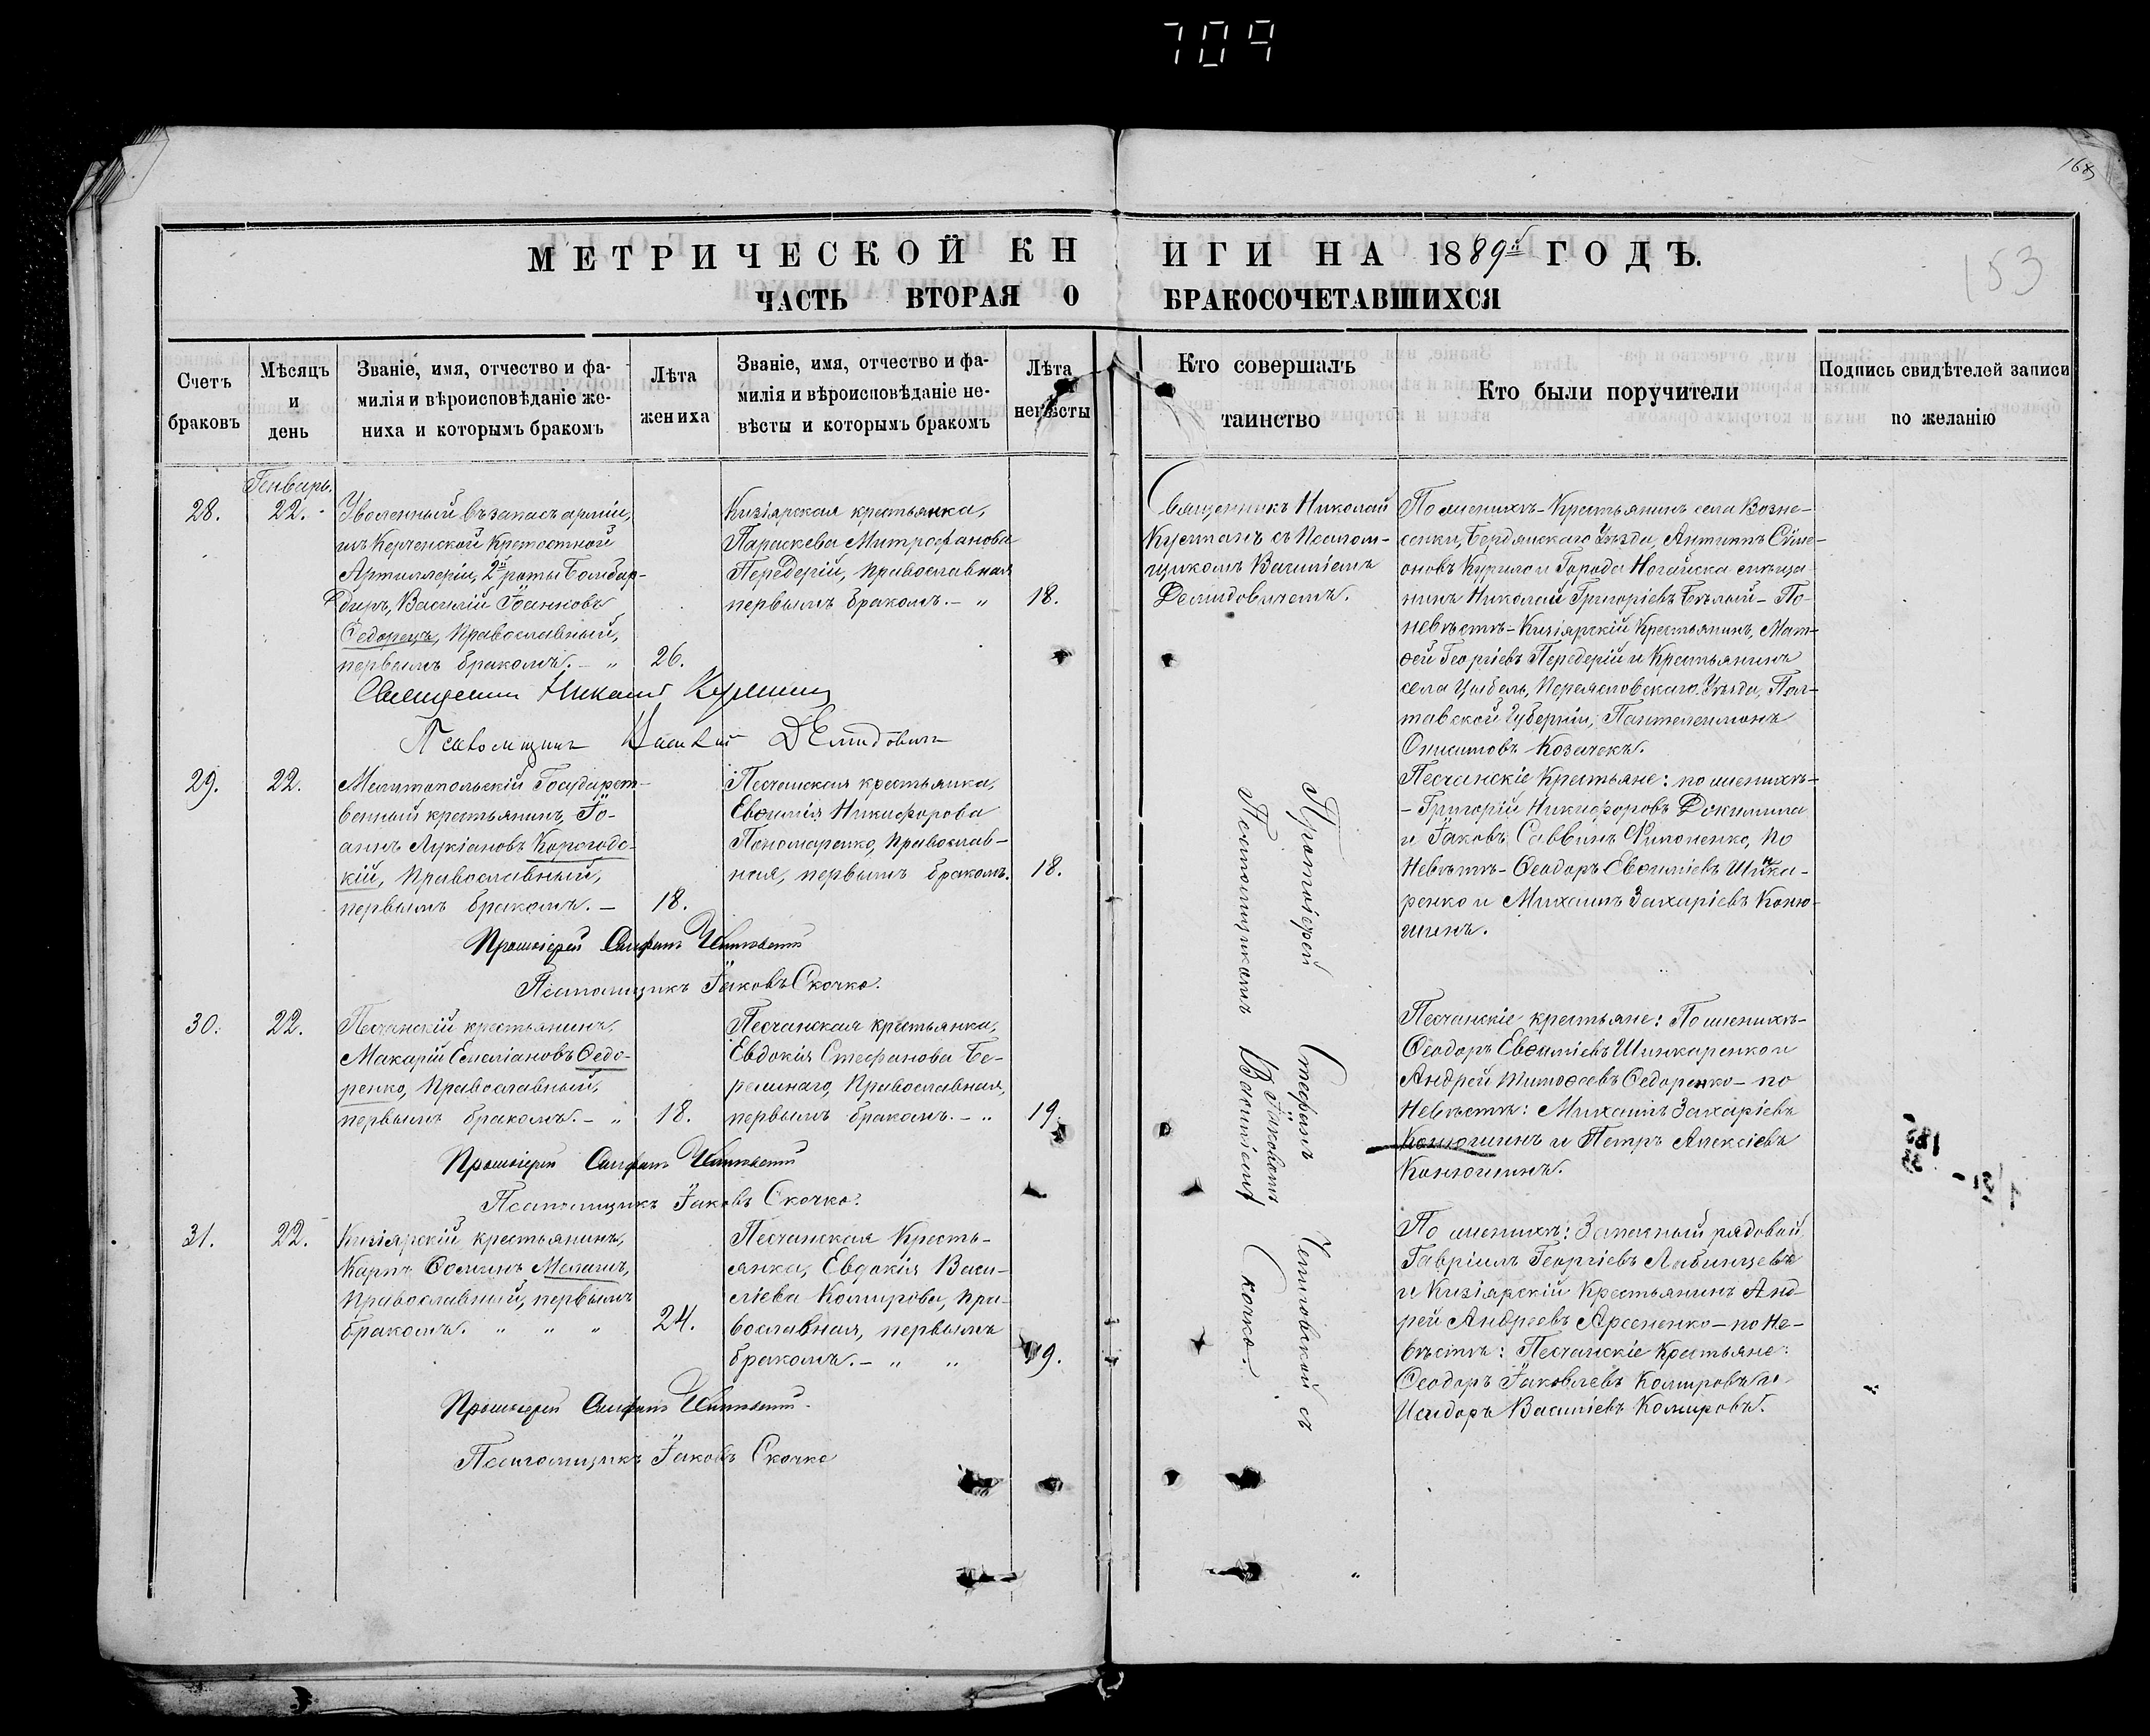 709
168
153
МЕТРИЧЕСКОЙ КНИГИ НА 1889й ГОДЪ.
ЧАСТЬ ВТОРАЯ О БРАКОСОЧЕТАВШИХСЯ
Счетъ браковъ
Мѣсяцъ и день
Званіе, имя, отчество и фа-
милія и вѣроисповѣданіе же-
ниха и которымъ бракомъ
Лѣта жениха
Званіе, имя, отчество и фа-
милія и вѣроисповѣданіе не-
вѣсты и которымъ бракомъ
Лѣта невѣсты
Кто совершалъ
таинство
Кто были поручители
Подпись свидѣтелей записи
по желанію
Генварь.
28.
22.
Уволенный въ запасъ арміи,
изъ Керченской Крѣпостной
Артиллеріи, 2й роты Бомбар-
диръ, Василій Іоанновъ
Ѳедорецъ, Православный,
первымъ бракомъ. – „
26.
Кизіярская крестьянка,
Параскева Митрофанова
Передерій, Православная
первымъ бракомъ. – „
18.
Священникъ Николай
Кустанъ съ Псалом-
щикомъ Василіемъ
Демидовичемъ.
По женихѣ – Крестьянинъ села Возне-
сенки, Бердянскаго Уѣзда, Антипъ Сѵме-
оновъ Курило и Города Ногайска мѣща-
нинъ Николай Григоріевъ Бѣлой – По
невѣстѣ – Кизіярскій Крестьянинъ, Мат-
ѳей Георгіевъ Передерій и Крестьянинъ
села Цыбель, Переяславскаго Уѣзда, Пол-
тавской Губерніи, Пантелеимонъ
Онисимовъ Козачекъ.
Священникъ Николай
Псаломщикъ Василій Демидовичъ
29.
22.
Мелитопольскій Государст-
венный крестьянинъ, Іо-
аннъ Лукіановъ Корогодс-
кій, Православный,
первымъ бракомъ. –
18.
Песчанская крестьянка,
Евѳимія Никифорова
Пономаренко, Православ-
ная, первымъ бракомъ.
18.
Песчанскіе Крестьяне: по женихѣ –
– Григорій Никифоровъ
и Іаковъ Саввинъ, По
Невѣстѣ – Ѳеодоръ Евѳиміевъ Шинка-
ренко и Михаилъ Захаріевъ Коню-
шинъ.
Протоіерей Стефанъ
Псаломщикъ Іаковъ Скочко.
30.
22.
Песчанскій крестьянинъ,
Макарій Емеліановъ Ѳедо-
ренко, Православный,
первымъ бракомъ. – „
18.
Песчанская крестьянка,
Евдокія Стефанова Бе-
реминаго, Православная,
первымъ бракомъ. – „
19.
Песчанскіе крестьяне: По женихѣ –
Ѳеодоръ Евѳиміевъ Шинкаренко и
Андрей Тимоѳеевъ Ѳедоренко – по
Невѣстѣ: Михаилъ Захаріевъ
Конюшинъ и Петръ Алексіевъ
Конюшинъ.
Протоіерей Стефанъ
Псаломщикъ Іаковъ Скочко.
31.
22.
Кизіярскій крестьянинъ,
Карпъ Ѳоминъ Меланъ,
Православный, первымъ
бракомъ. „ „ „
24.
Песчанская Кресть-
янка, Евдокія Васи-
ліева Комирова, Пра-
вославная, первымъ
бракомъ. – „ „
19.
По женихѣ: Запасный рядовой
Гавріилъ Георгіевъ Лабинцевъ
и Кизіярскій Крестьянинъ Анд-
рей Андреевъ Арсененко – по Не-
вѣстѣ: Песчанскіе Крестьяне:
Ѳеодоръ Іаковлевъ Комировъ и
Исидоръ Василіевъ Комировъ.
Протоіерей Стефанъ
Псаломщикъ Іаковъ Скочко
Протоіерей Стефанъ съ
Псаломщикомъ Іаковомъ Василіемъ Скочко.